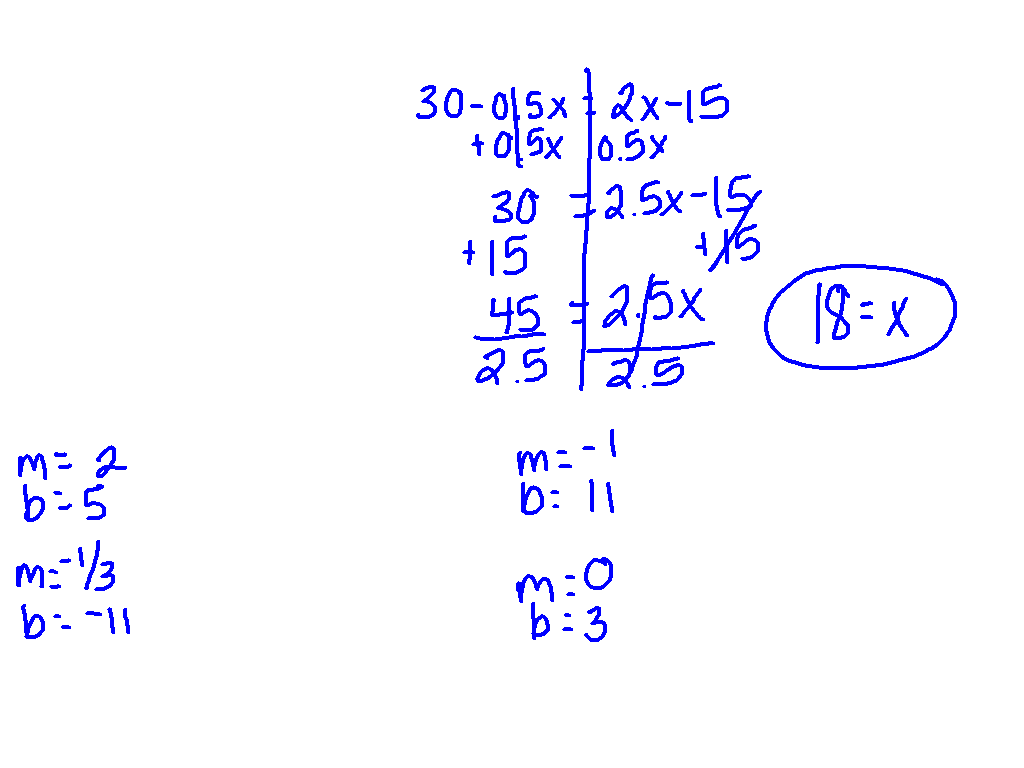 30 - 0.5x = 2x - 15
+ 0.5x 0.5x
30 = 2.5x - 15
+ 15 + 15
45 = 2.5x
2.5 2.5
18 = x
m = 2
b = 5
m = -1
b = 11
m = -1/3
b = -11
m = 0
b = 3